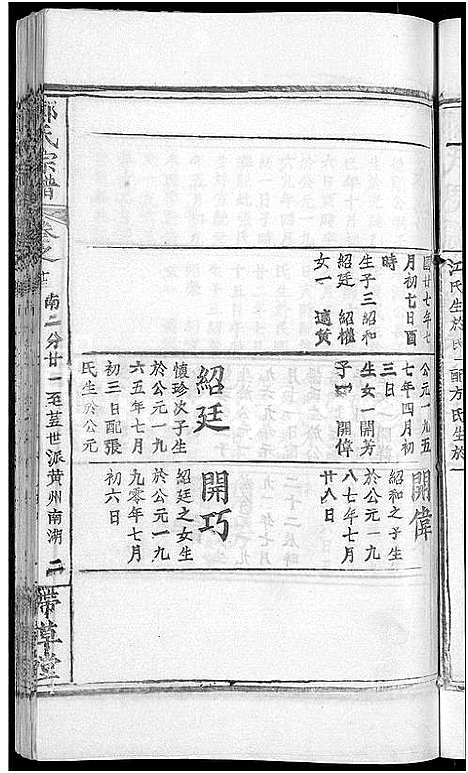 國廿七年七
月初七日酉
時
生子三紹和
紹廷 紹權
女一 適黃
公元一九五
七年四月初
三日
生女一開芳
子一 開偉
紹廷
懷珍次子生
於公元一九
六五年七月
初三日配張
氏生於公元
開偉
紹和之子生
於公元一九
八七年七月
廿八日
開巧
紹廷之女生
於公元一九
九零年七月
初六日
鄭氏宗譜
卷之
南二分廿一至
世派黄州南湖
二
帶草堂